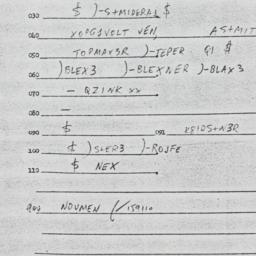 030 $ )-S+MIDERAL $
040 XOPGSVOLT VEN, AS+MIT
050 TOPMAVSR )-IEPER G1 $
060 )BLEX3 )-BLEXNER )-BLAX3
070 - QZINK XX
080 -
090 $ 091
100 $ )SLER3 )-ROJFE
110 $ NEX
900 NOUMEN (/159110